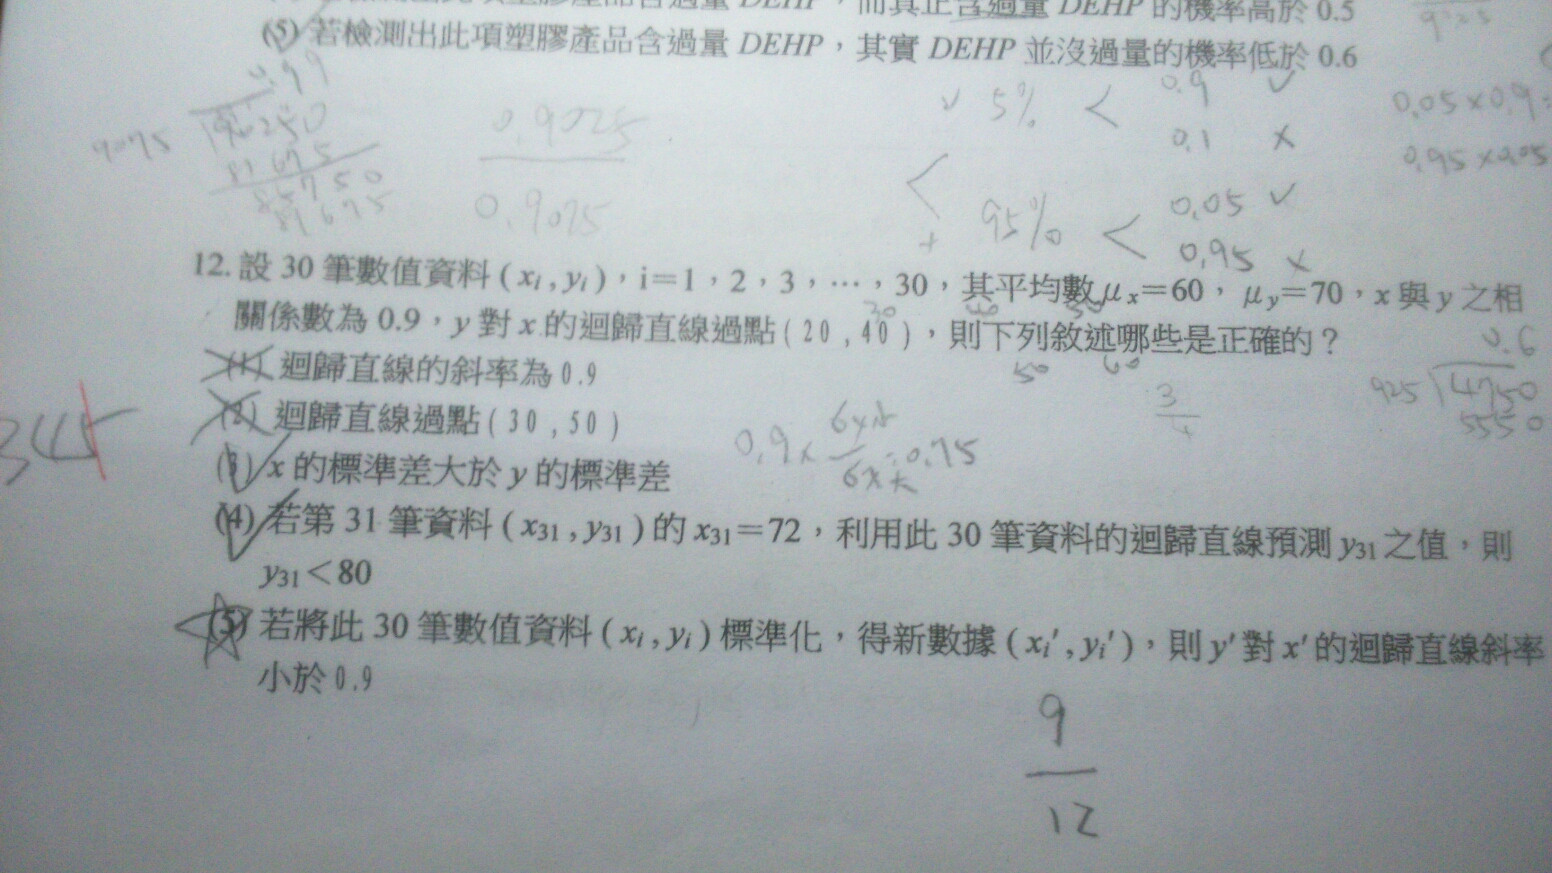 DEHP，而真正含過量 DEHP 的機率高於 0.5
(5) 若檢測出此項塑膠產品含過量 DEHP，其實 DEHP 並沒過量的機率低於 0.6
0.9 ✓
✓ 5% <
0.1 ×
0.05×0.9
0.95×0.05
9075
90250
81675
85750
81675
0.9025
0.9075
<
0.05 ✓
+ 95% <
0.95 ×
12. 設 30 筆數值資料 (xi , yi)，i=1，2，3，…，30，其平均數 μx=60，μy=70，x 與 y 之相
關係數為 0.9，y 對 x 的迴歸直線過點(20 , 40)，則下列敘述哪些是正確的？
30 40 50
50 60
(1) 迴歸直線的斜率為 0.9
3
4
0.6
925 4750
5550
(2) 迴歸直線過點(30 , 50)
345
0.9× = 0.75
(3) x 的標準差大於 y 的標準差
(4) 若第 31 筆資料 (x31 , y31) 的 x31=72，利用此 30 筆資料的迴歸直線預測 y31 之值，則
y31＜80
(5) 若將此 30 筆數值資料 (xi , yi) 標準化，得新數據 (xi′ , yi′)，則 y′ 對 x′ 的迴歸直線斜率
小於 0.9
9
12